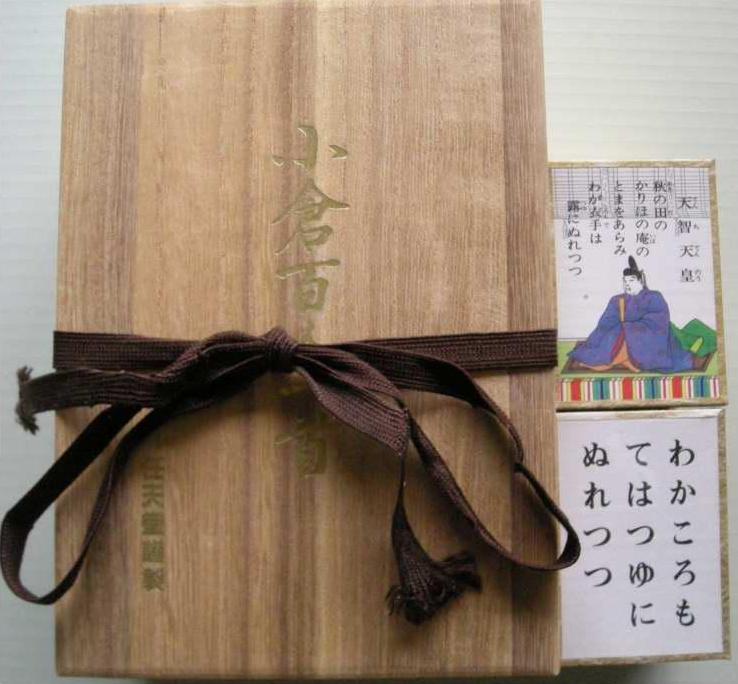 小倉百 首
任天堂謹製
天智天皇
秋の田の
かりほの庵の
とまをあらみ
わが衣手は
露にぬれつつ
わかころも
てはつゆに
ぬれつつ